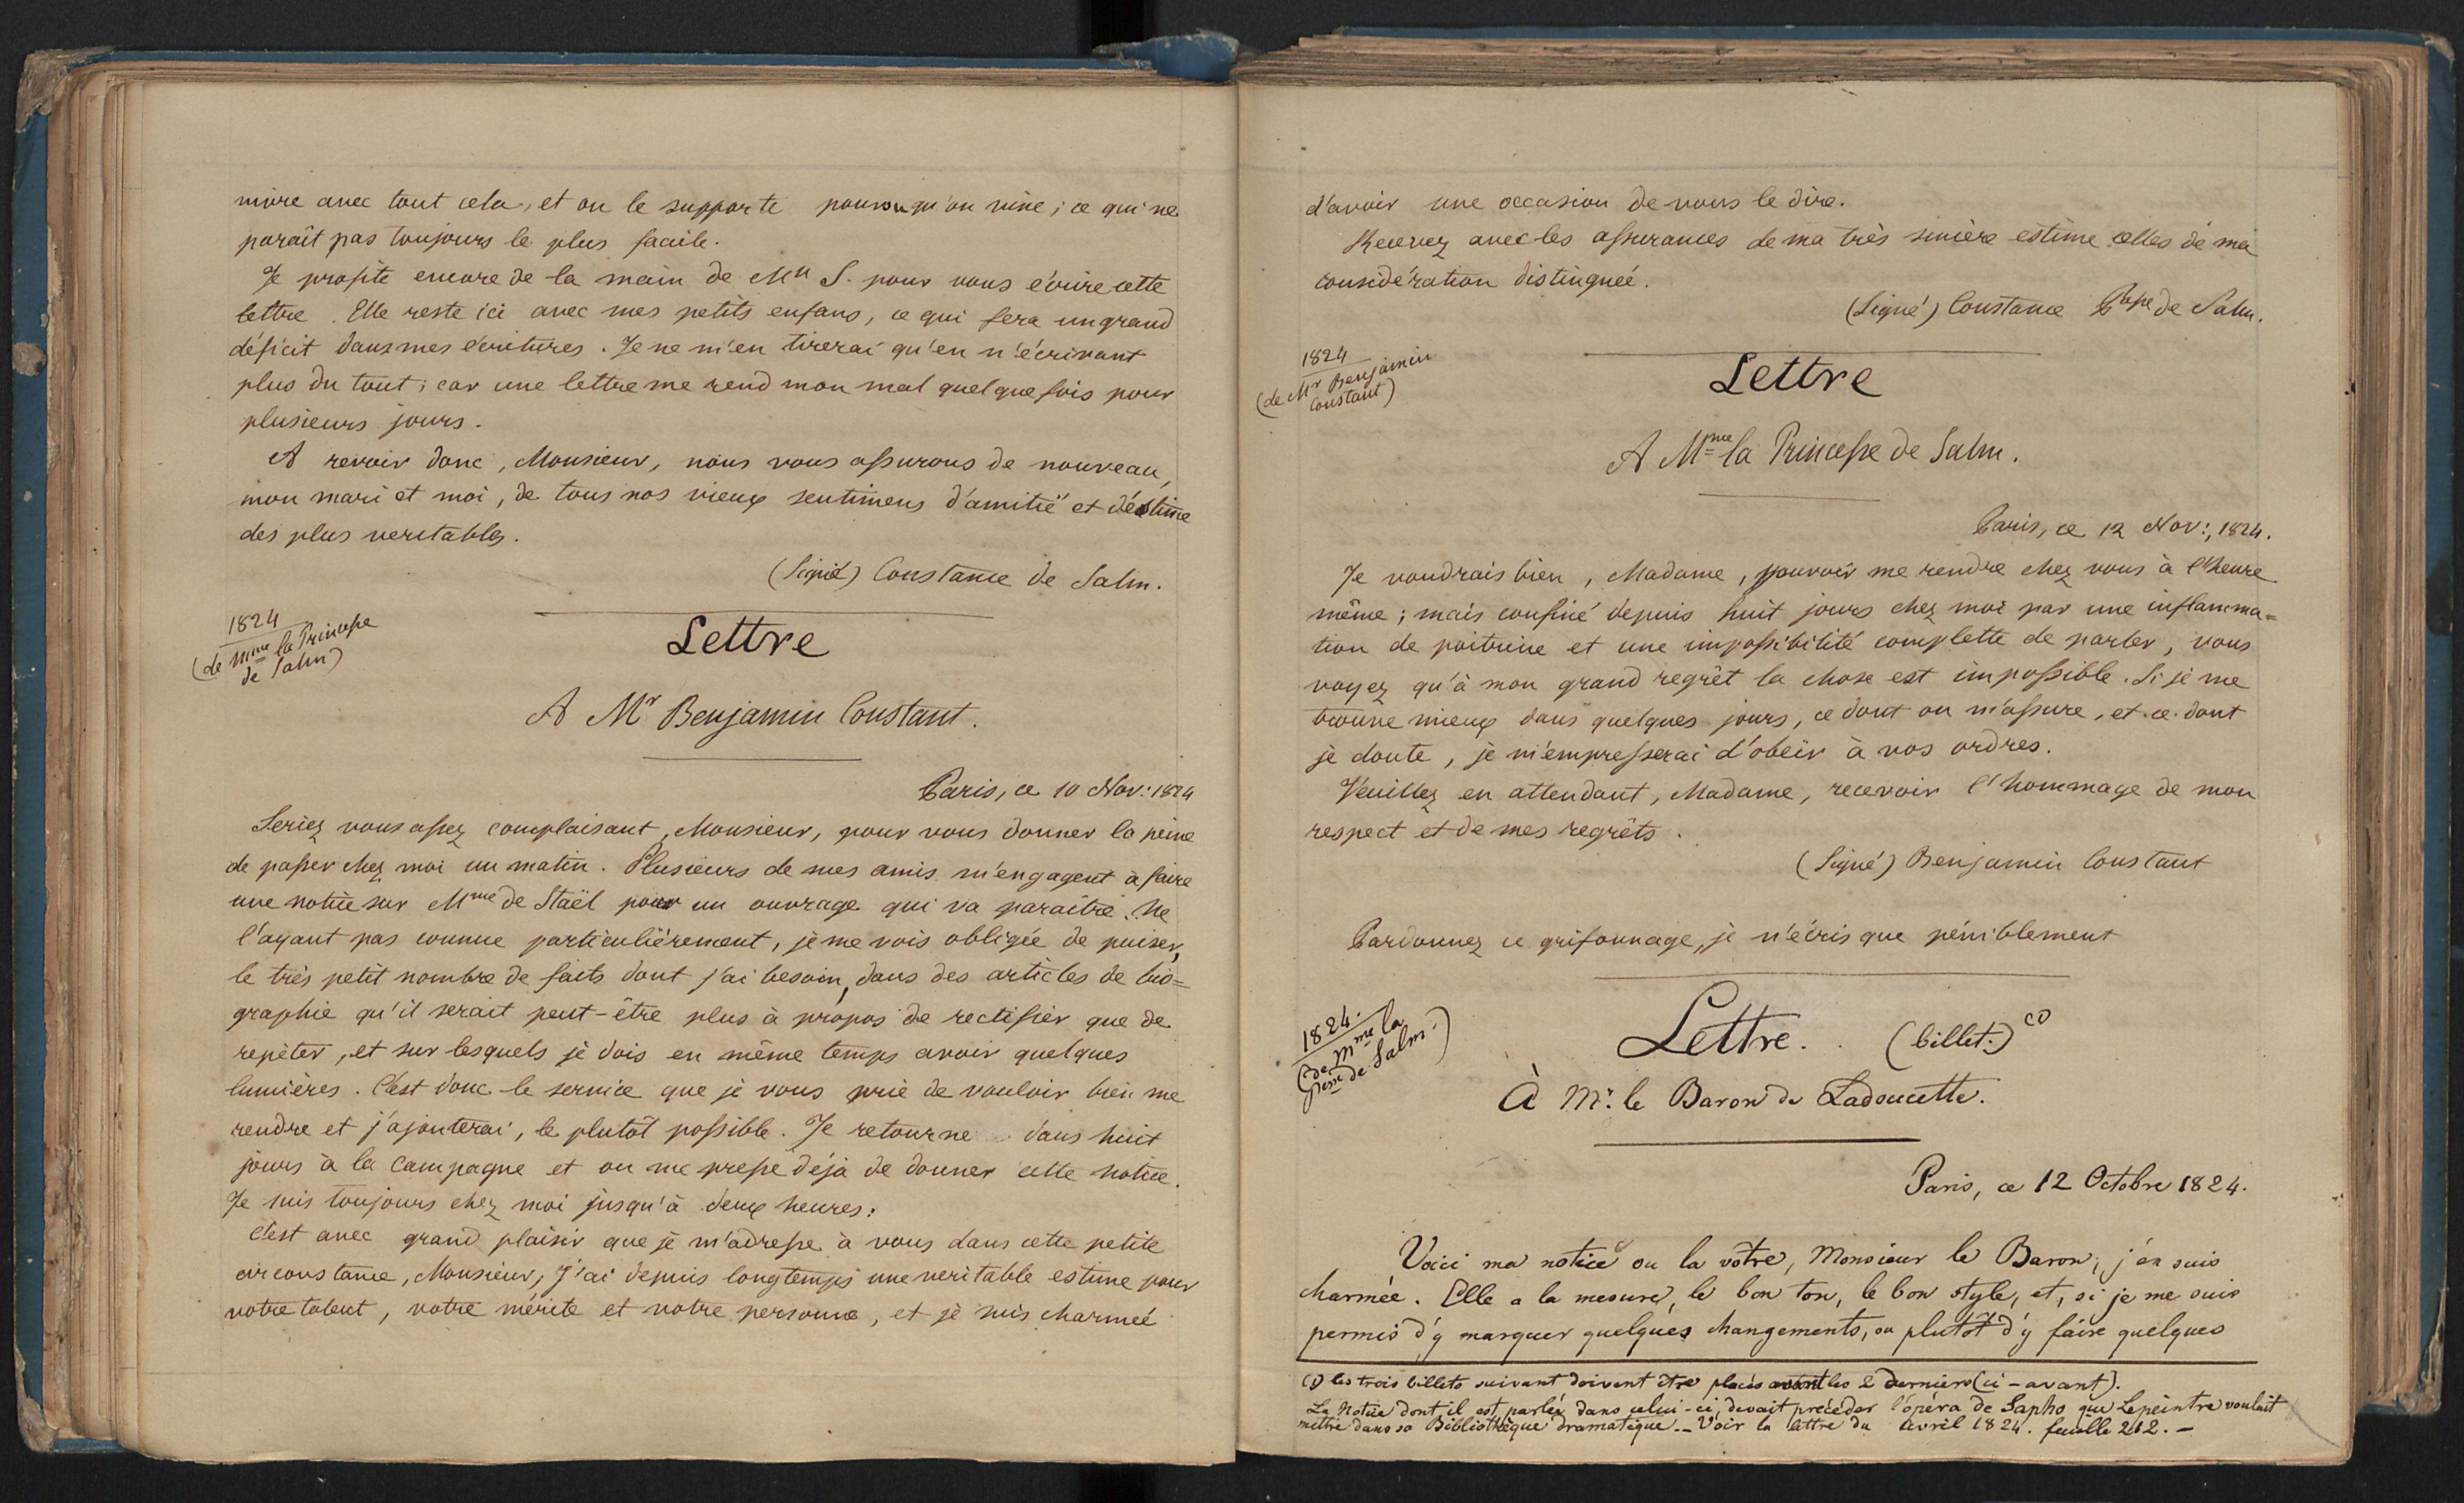 mire avec tout cela, et on le supporte pourvu qu'on vive; ce qui ne
paraît pas toujours le plus facile.
Je profite encore de la main de Mlle S. pour vous écrire cette
lettre. Elle reste ici avec mes petits enfans, ce qui fera un grand
déficit dans mes écritures. Je ne m'en tirerai qu'en n'écrivant
plus du tout; car une lettre me rend mon mal quelquefois pour
plusieurs jours.
A revoir donc, Monsieur, nous vous assurons de nouveau,
mon mari et moi, de tous nos vieux sentimens d'amitié et d'estime
des plus veritables.
(Signé) Constance de Salm.
1824
(de Mme la Princesse
de Salm)
Lettre
A Mr Benjamin Constant.
Paris, ce 10 Nov: 1824
Seriez vous assez complaisant, Monsieur, pour vous donner la peine
de passer chez moi un matin. Plusieurs de mes amis m'engagent à faire
une notice sur Mme de Staël pour un ouvrage qui va paraître. Ne
l'ayant pas connue particulièrement, je me vois obligée de puiser,
le très petit nombre de faits dont j'ai besoin, dans des articles de bio=
graphie qu'il serait peut-être plus à propos de rectifier que de
repéter, et sur lesquels je dois en même temps avoir quelques
lumières. C'est donc le service que je vous prie de vouloir bien me
rendre et j'ajouterai, le plutôt possible. Je retourne dans huit
jours à la Campagne et on me presse déjà de donner cette notice.
Je suis toujours chez moi jusqu'à deux heures.
C'est avec grand plaisir que je m'adresse à vous dans cette petite
circonstance, Monsieur; j'ai depuis longtemps une veritable estime pour
votre talent, votre mérite et votre personne, et je suis charmée
d'avoir une occasion de vous le dire.
Recevez avec les assurances de ma très sincère estime celles de ma
considération distinguée.
(Signé) Constance Psse de Salm.
1824
(de Mr Benjamin
Constant)
Lettre
A Mme la Princesse de Salm.
Paris, ce 12 Nov:, 1824.
Je voudrais bien, Madame, pouvoir me rendre chez vous à l'heure
même; mais confiné depuis huit jours chez moi par une inflamma=
tion de poitrine et une impossibilité complette de parler, vous
voyez qu'à mon grand regrêt la chose est impossible. Si je me
trouve mieux dans quelques jours, ce dont on m'assure, et ce dont
je doute, je m'empresserai d'obéir à vos ordres.
Veuillez en attendant, Madame, recevoir l'hommage de mon
respect et de mes regrêts.
(Signé) Benjamin Constant
Pardonnez ce grifonnage, je n'écris que péniblement
1824.
(de Mme la
Pesse de Salm.)
Lettre. (billet.) (1)
À Mr. le Baron de Ladoucette.
Paris, ce 12 Octobre 1824.
Voici ma notice ou la vôtre, Monsieur le Baron; j'en suis
charmée. Elle a la mesure, le bon ton, le bon style, et, si je me suis
permis d'y marquer quelques changements, ou plutôt d'y faire quelques
(1) les trois billets suivant doivent être placés avant les 2 derniers (ci-avant).
La Notice dont il est parlée dans celui-ci, devait précéder l'opéra de Sapho que Lepeintre voulait
mettre dans sa Bibliothèque dramatique. - Voir la lettre du avril 1824. feuille 212. -